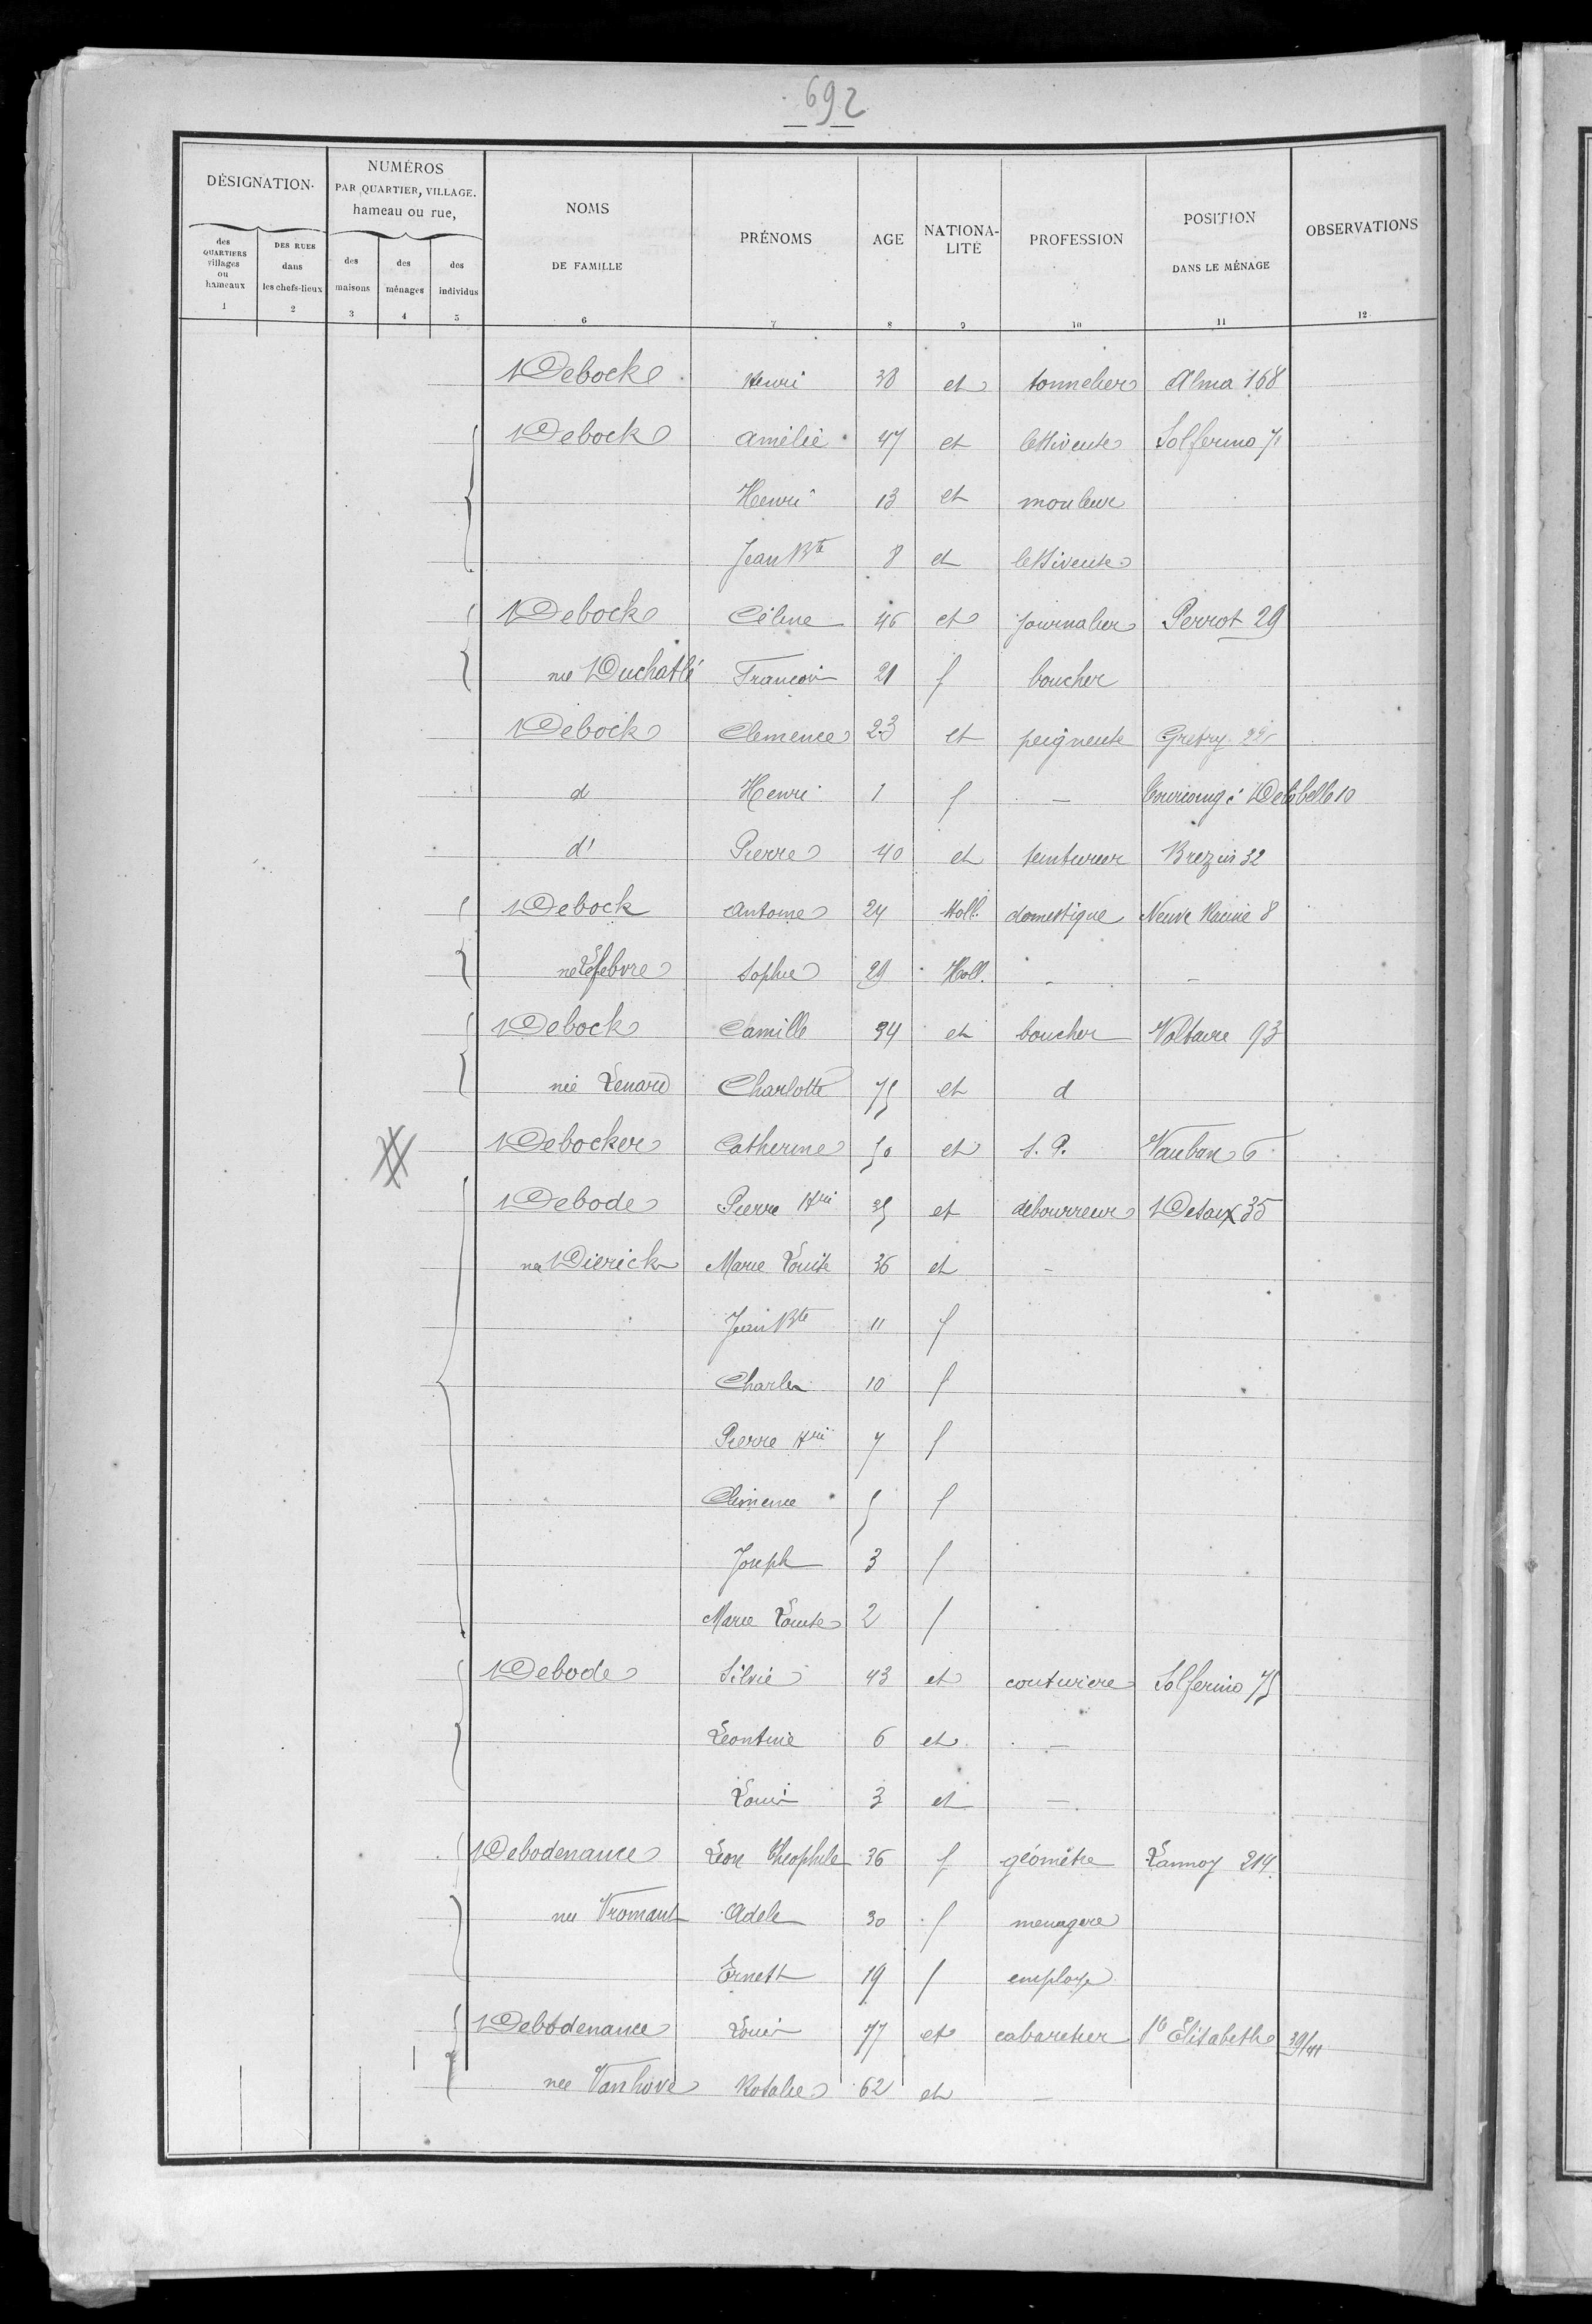 692
DÉSIGNATION
des QUARTIERS villages ou hameaux
1
DES RUES dans les chefs-lieux
2
NUMÉROS PAR QUARTIER, VILLAGE. hameau ou rue,
des maisons
3
des ménages
4
des individus
5
NOMS DE FAMILLE
6
PRÉNOMS
7
AGE
8
NATIONA-LITÉ
9
PROFESSION
10
POSITION DANS LE MÉNAGE
11
OBSERVATIONS
12
Debock Henri 38 et tonnelier Alma 168
Debock Amélie 47 et lessiveuse Solferino 71
Henri 13 et mouleur
Jean Bte 8 et lessiveuse
Debock Céline 46 et journalier Perrot 29
née Duchatlé François 21 f boucher
Debock Clemence 23 et peigneuse Gretry
d Henri 1 f — Delobelle 10
d° Pierre 40 et teinturier Brezin 32
Debock Antoine 24 Holl. domestique Neuve Racine 8
née Lefebvre Sophie 29 Holl. - -
Debock Camille 34 et boucher Voltaire 93
née Lenard Charlotte 75 et d
Debocker Catherine 50 et S. P. Vauban 6
Debode Pierre Hri 35 et débourreur Desaix 35
née Dierick Marie Louise 36 et -
Jean Bte 11 f
Charles 10 f
Pierre Hri 7 f
Clémence 5 f
Joseph 3 f
Marie Louise 2 f
Debode Silvie 43 et couturiere Solferino 75
Léontine 6 et —
Louis 3 et —
Debodenance Léon Théophile 36 f géomètre Lannoy 214
née Vromant Adele 30 f menagere
Ernest 19 f employé
Debodenance Louis 77 et cabaretier Ste Elisabeth 39/41
née Vanhove Rosalie 62 et —